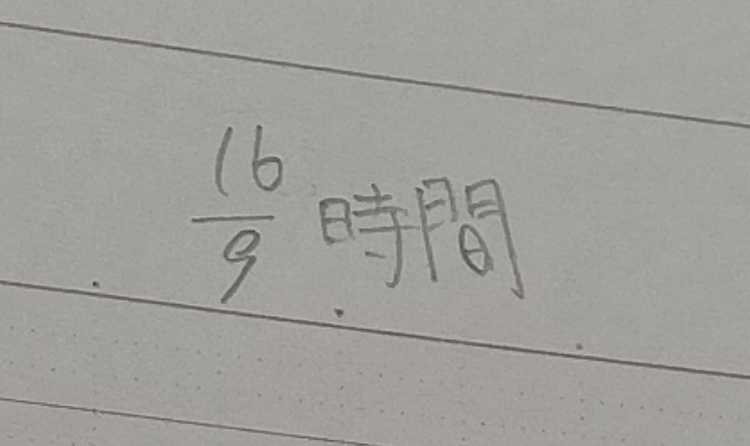 16/9 時間